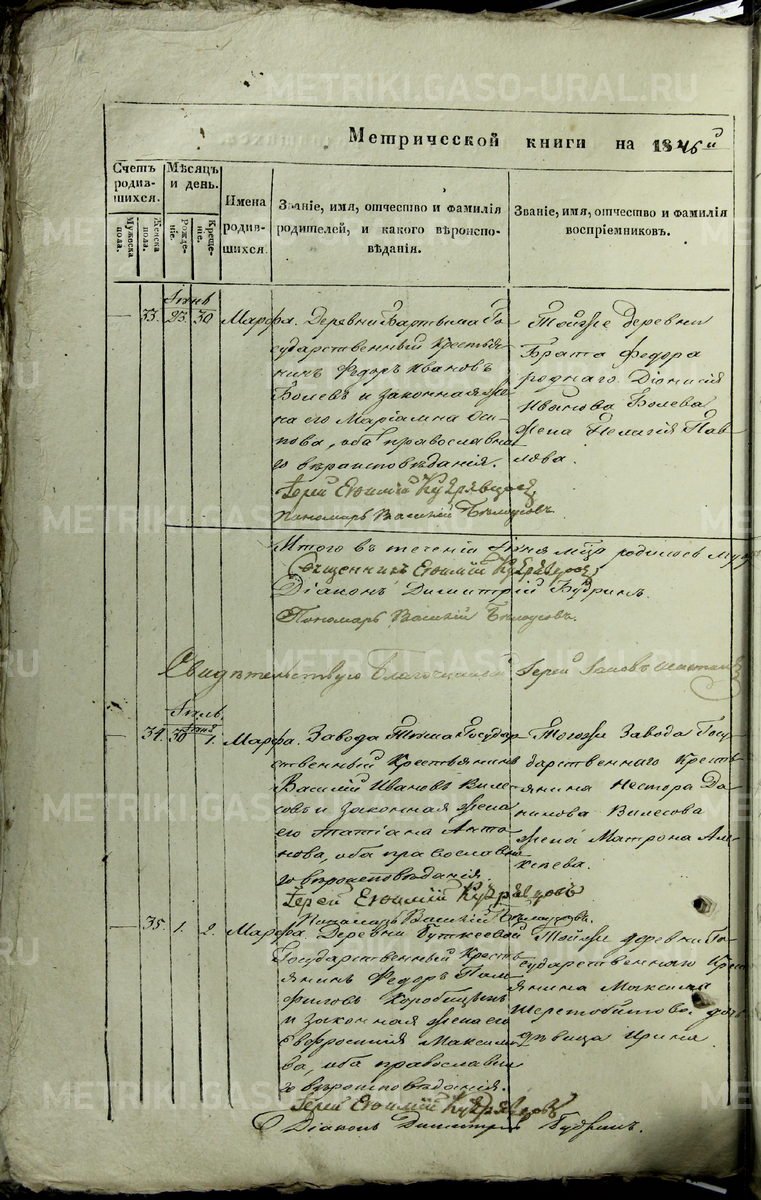 METRIKI.GASO-URAL.RU
Метрической книги на 1846й
Счетъ родив-шихся.
Мѣсяцъ и день.
Мужеска пола.
Женска пола.
Рожде-ніе.
Креще-ніе.
Имена родив-шихся.
Званіе, имя, отчество и фамилія
родителей, и какого вѣроиспо-
вѣданія.
Званіе, имя, отчество и фамилія
воспріемниковъ.
Іюнь
33. 23. 30 Марфа.
Деревни Бартыма Го-
сударственный крестья-
нинъ Ѳедоръ Ивановъ
Болевъ и законная же-
на его Маріамна Оси-
пова, оба православна-
го вѣроисповѣданія.
Іерей Евѳимій Кудрявцовъ
Пономарь Василій Бѣлоусовъ.
Тойже деревни
Брата Ѳедора
роднаго Діонисія
Иванова Болева
жена Пелагія Пав-
лова.
Итого въ теченіи Іюня мѣца родилось
Священникъ Евѳимій Кудрявцовъ
Діаконъ Димитрій Будринъ.
Пономарь Василій Бѣлоусовъ.
Свидѣтельствую Благочинный Іерей
Іюль.
34. 30 Іюня 1. Марфа.
Завода Государ-
ственный Крестьянинъ
Василій Ивановъ Виле-
совъ и законная жена
его Татіана Анто-
нова, оба православна-
го вѣроисповѣданія.
Іерей Евѳимій Кудрявцовъ
Пономарь Василій Бѣлоусовъ.
Тогоже Завода Госу-
дарственнаго Кресть-
янина Нестора Да-
нилова Вилесова
жена Матрона Але-
ксѣева.
35. 1. 2. Марфа.
Деревни Буткеевой
Государственный Кресть-
янинъ Ѳедоръ Пам-
филовъ Коробицынъ
и законная жена его
Евфросинія Максимо-
ва, оба православна-
го вѣроисповѣданія.
Іерей Евѳимій Кудрявцовъ
Діаконъ Димитрій Будринъ.
Тойже деревни Го-
сударственнаго Крест-
янина Максима
Шерстобитова дочь
дѣвица Ирина.